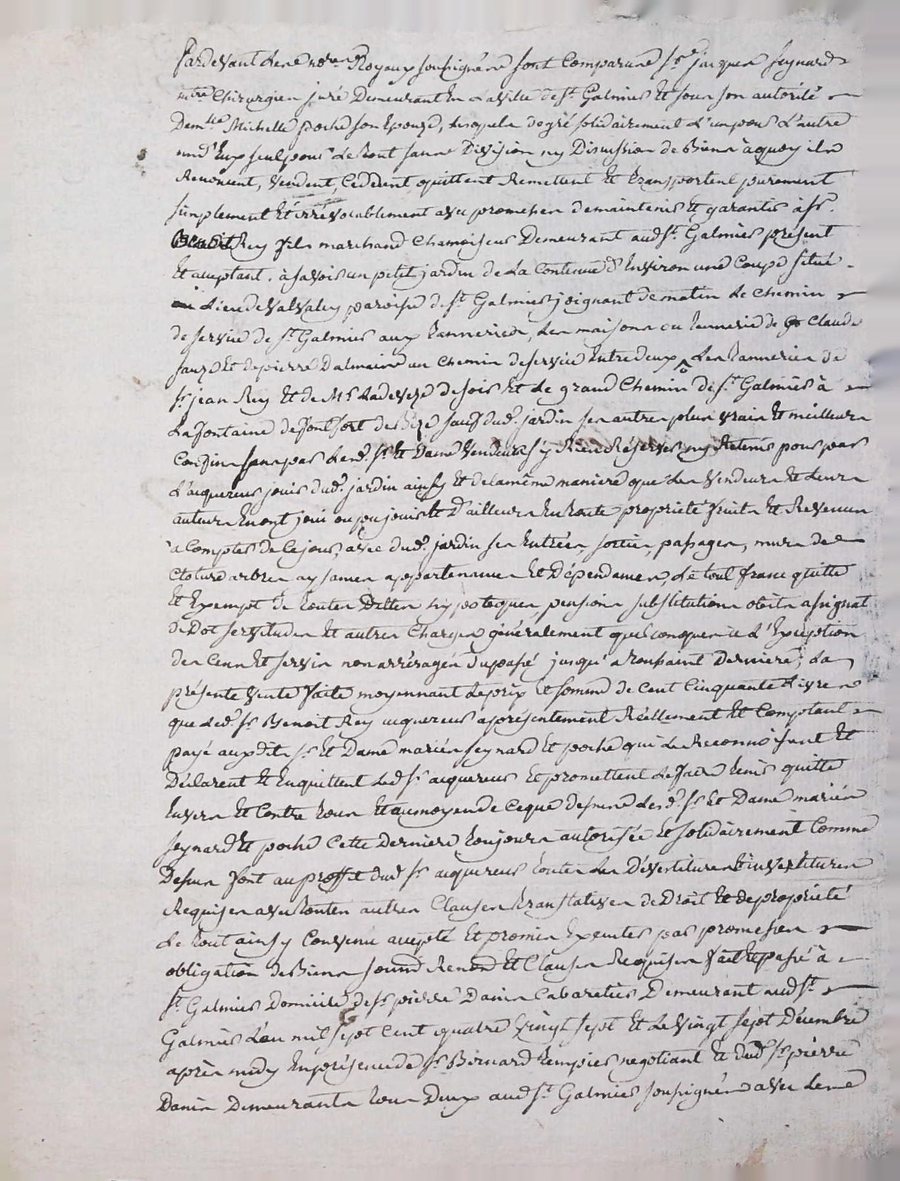 Pardevant Les no.res Royaux soussignés sont Comparus Sr jacques seynard
m.tre Chirurgien juré Demeurant En La Ville de st Galmier Et sous son autorité
Dem.lle Michelle poche son Epouze, Lesquels de gré solidairement L'un pour L'autre
un d'Eux seul pour Le tout sans Division ny Discution de Biens à quoy ils
Renoncent, Vendent, Cedent, quittent Remettent Et transportent purement
simplement Et irrévocablement avec promesses de maintenir Et garantir à sr.
Benoit Rey fils marchand Chamoiseur Demeurant aud. st. Galmier présent
Et acceptant. à savoir un petit jardin de La Contenue d'Environ une Coupe situé
Lieu de Valvaley paroisse de st. Galmier joignant de matin Le Chemin
de service de st. Galmier aux tanneries, Les maisons ou tannerie de Claude
Et de pierre Dalmais un Chemin de service Entre deux Les tanneries de
sr. jean Rey Et de Mr. de soir Et Le grand Chemin de st. Galmier à
La fontaine de fontfort de Bize sauf dud. jardin ses autres plus vrais Et meilleurs
Confins sans par Lesd. sr. Et Dame Vendeurs s'y Rien Réserver ny Retenir pour par
L'acquereur jouir dud. jardin ainsy Et de La même maniere que Les Vendeurs Et Leurs
auteurs En ont joui ou pu jouir Et D'ailleurs En toute propriété fruits Et Revenus
à Compter de Ce jour, avec dud. jardin ses Entrées, sorties, passages, murs de
Cloture arbres aysances appartenances Et Dépendances, Le tout franc quitte
Et Exempt de toutes Dettes hypoteques pensions substitutions obits assignat
de Dot servitudes Et autres Charges généralement quelconques à L'Exception
des Cens Et servis non arréragés du passé jusqu'à La toussaint Derniere; La
présente Vente faite moyennant Le prix Et somme de Cent Cinquante Livres
que Led. sr. Benoit Rey acquereur a présentement Réellement Et Comptant
payé auxdits sr. Et Dame mariés seynard Et poche qui Le Reconnoissent Et
Déclarent Et En quittent Led. sr. acquereur Et promettent Le faire tenir quitte
Envers Et Contre tous Et au moyen de Ce que dessus Lesd. sr. Et Dame mariés
seynard Et poche Cette Derniere toujours autorisée Et solidairement Comme
Dessus font au proffit dud. sr. acquereur toutes Les Dévestitures Et investitures
Requises avec toutes autres Clauses translatives de Droit Et de propriété
Le tout ainsy Convenu accepté Et promis Executer par promesses
obligation de Biens soumd Renond Et Clauses Requises fait Et passé à
st. Galmier Domicile de sr. pierre Danis Cabaretier Demeurant aud. st.
Galmier L'an mil sept Cent quatre Vingt sept Et Le Vingt sept Décembre
après midy En présence de sr. Bernard negotiant Et dud. sr. pierre
Danis Demeurants tous Deux aud. st. Galmier soussignés avec Les